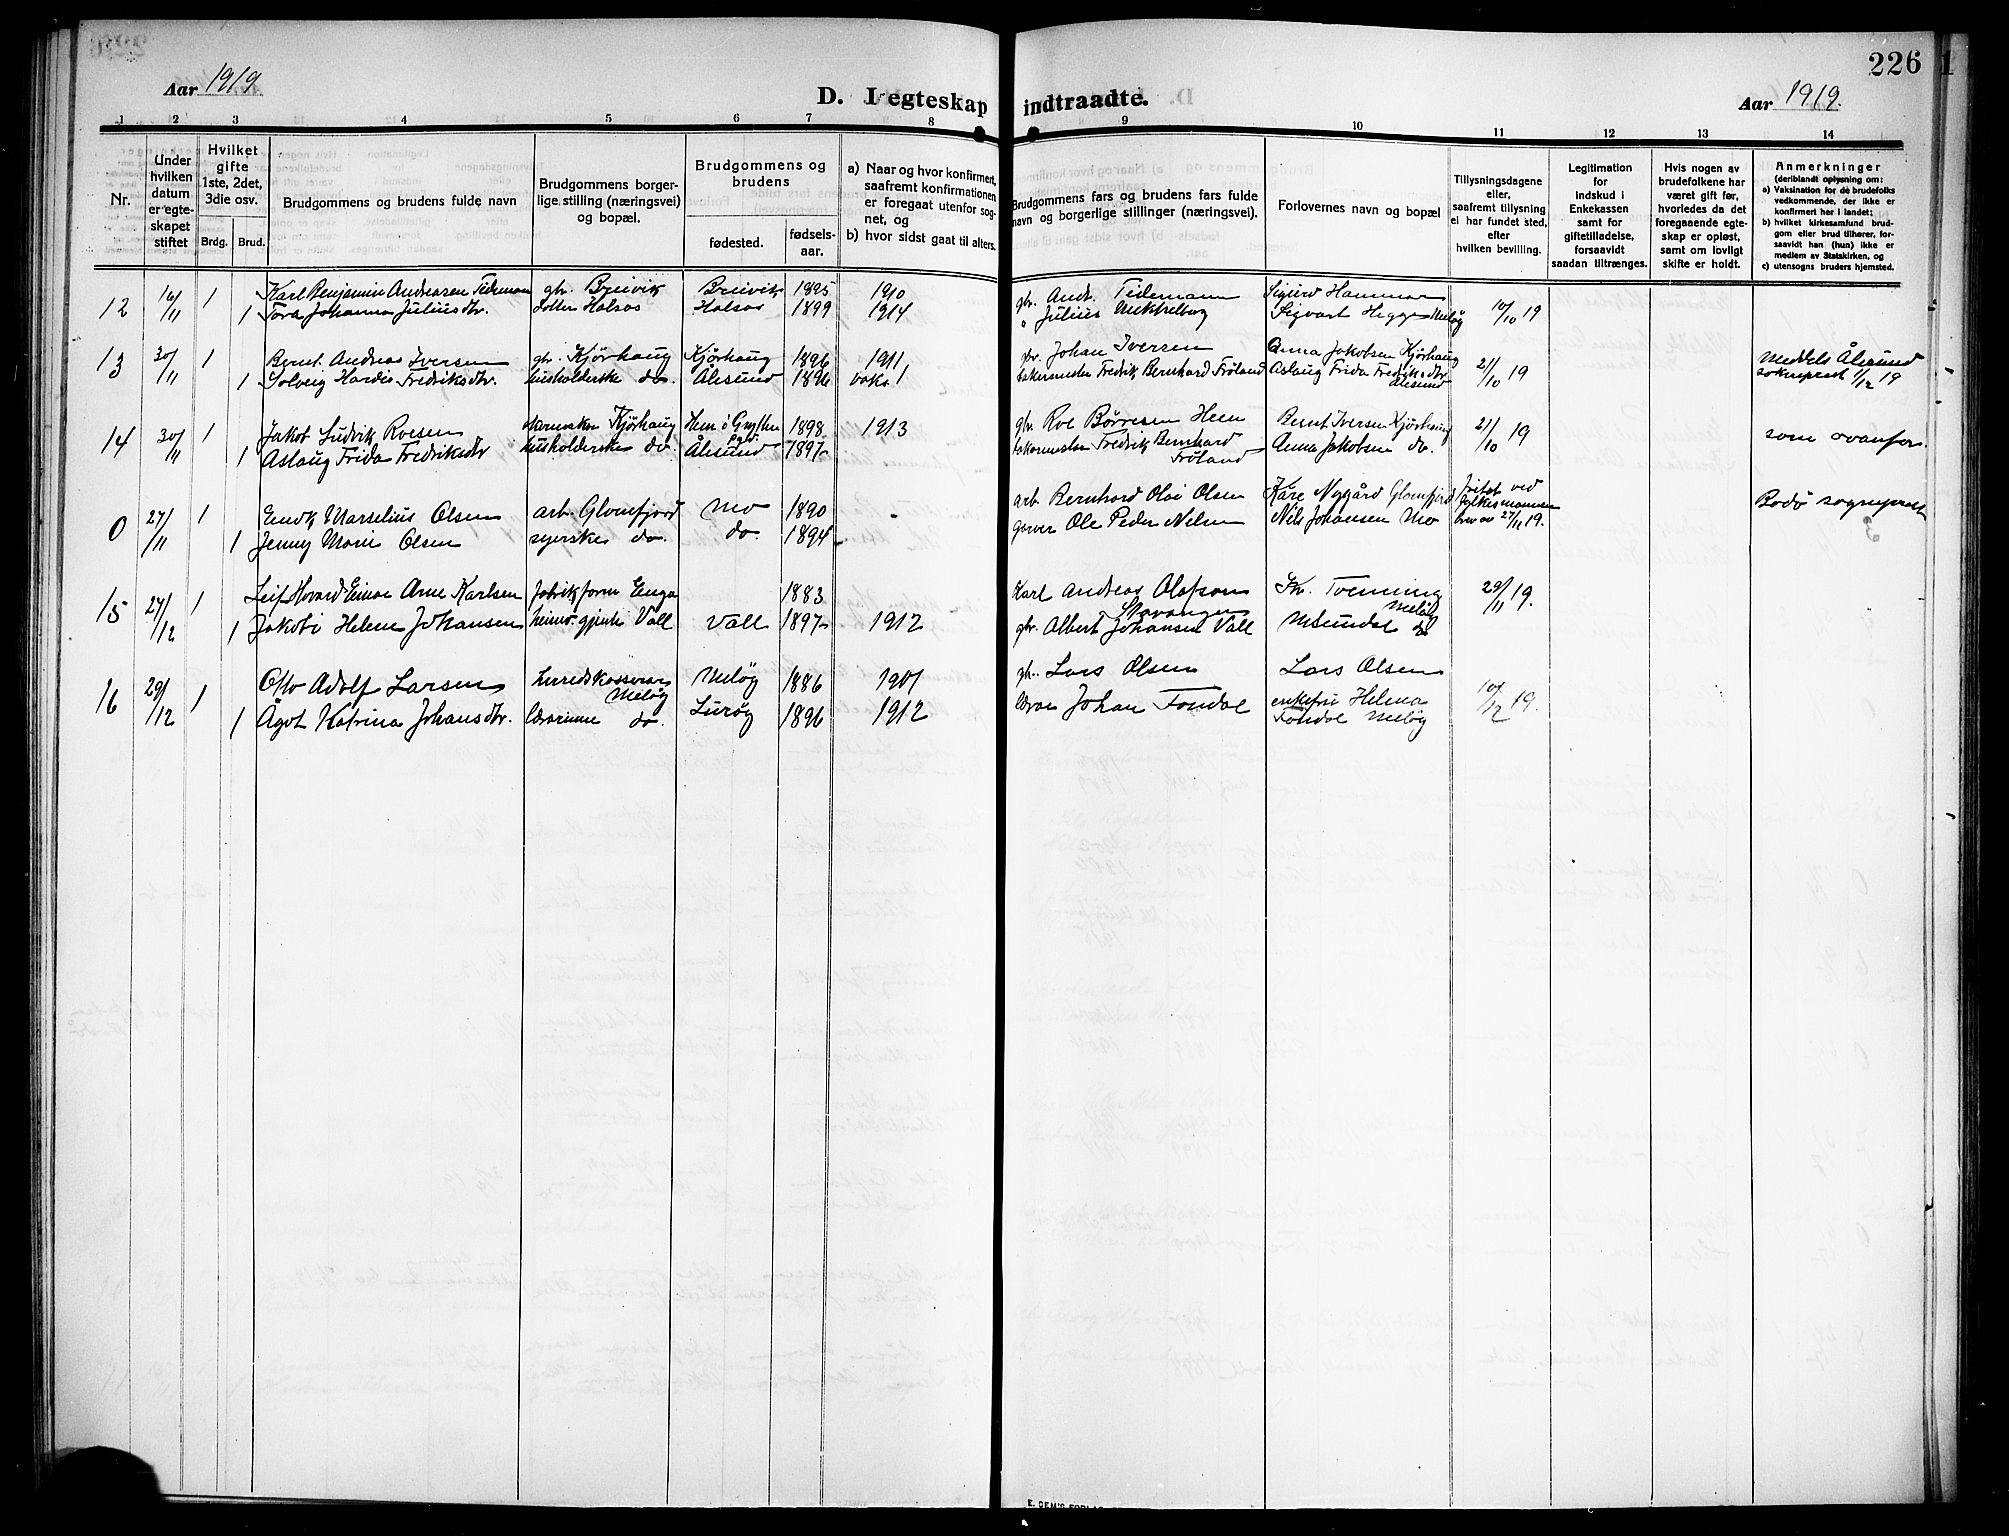 226
Aar 1919.
D. I egteskap indtraadte.
Aar 1919.
1 2 3 4 5 6 7 8 9 10 11 12 13 14
Nr.
Under hvilken datum er egteskapet stiftet
Hvilket gifte 1ste, 2det, 3die osv.
Brdg. Brud.
Brudgommens og brudens fulde navn
Brudgommens borgerlige stilling (næringsvei) og bopæl.
Brudgommens og brudens
fødested. fødselsaar.
a) Naar og hvor konfirmert, saafremt konfirmationen er foregaat utenfor sognet, og
b) hvor sidst gaat til alters.
Brudgommens fars og brudens fars fulde navn og borgerlige stillinger (næringsvei).
Forlovernes navn og bopæl
Tillysningsdagene eller, saafremt tillysning ei har fundet sted, efter hvilken bevilling.
Legitimation for indskud i Enkekassen samt for giftetilladelse, forsaavidt saadan tiltrænges.
Hvis nogen av brudefolkene har været gift før, hvorledes da det foregaaende egteskap er opløst, samt om lovligt skifte er holdt.
Anmerkninger
(deriblandt oplysning om:
a) Vaksination for de brudefolks vedkommende, der ikke er konfirmert her i landet;
b) hvilket kirkesamfund brudgom eller brud tilhører, forsaavidt han (hun) ikke er medlem av Statskirken, og
c) utensogns bruders hjemsted.
12 16/11 1 Karl Benjamin Andreasen Tidemann gbr. Breivik Breivik 1895 1910 gbr. Andr. Tidemann Sigurd Hammer 10/10 19
1 Tora Johanna Juliusdtr. Holsos Holsos 1899 1914 " Julius Sigvart Hegge Meløy
13 30/11 1 Bernt Andreas Iversen gbr. Kjørhaug Kjørhaug 1896 1911 gbr. Johan Iversen Anna Jakobsen Kjørhaug 21/10 19 Meddelt Ålesund
1 Solveig Hardis Fredriksdtr. husholderske do. Ålesund 1896 vaks. bakermester Fredrik Bernhard Frøland Aslaug Frida Fredriksdtr Ålesund sokneprest 1/12 19
14 30/11 1 Jakob Ludvik Roesen Kjørhaug Hem i 1898 1913 gbr. Roe Børresen Hem Bernt Iversen Kjørhaug 21/10 19 som ovanfor.
1 Aslaug Frida Fredriksdtr husholderske do. Ålesund 1897 bakermester Fredrik Bernhard Frøland Anna Jakobsen do.
0 27/11 1 Marselius Olsen arb. Glomfjord Mo 1890 - arb. Bernhard Olai Olsen Kåre Nygård Glomfjord fritat ved fylkesmannen Bodø sogneprest
1 Jenny Marie Olsen syerske do. do 1894 garver Ole Peder Nilsen Nils Johansen Mo brev av 27/11 19.
15 27/12 1 Leif Havard Einar Arne Karlsen fabrikform Enga 1883 Karl Andreas Olafson Stavanger Kr. Tvenning Meløy 29/11 19.
1 Jakobi Helene Johansen Vall Vall 1897 1912 gbr. Albert Johansen Vall do
16 29/12 1 Otto Adolf Larsen herredskasserar Meløy Meløy 1886 1901 gbr. Lars Olsen Lars Olsen 10/12 19.
1 Ågot Katrina Johansdtr. lærarinne do. Lurøy 1896 1912 lærar Johan Fondal enkefru Helena Fondal Meløy